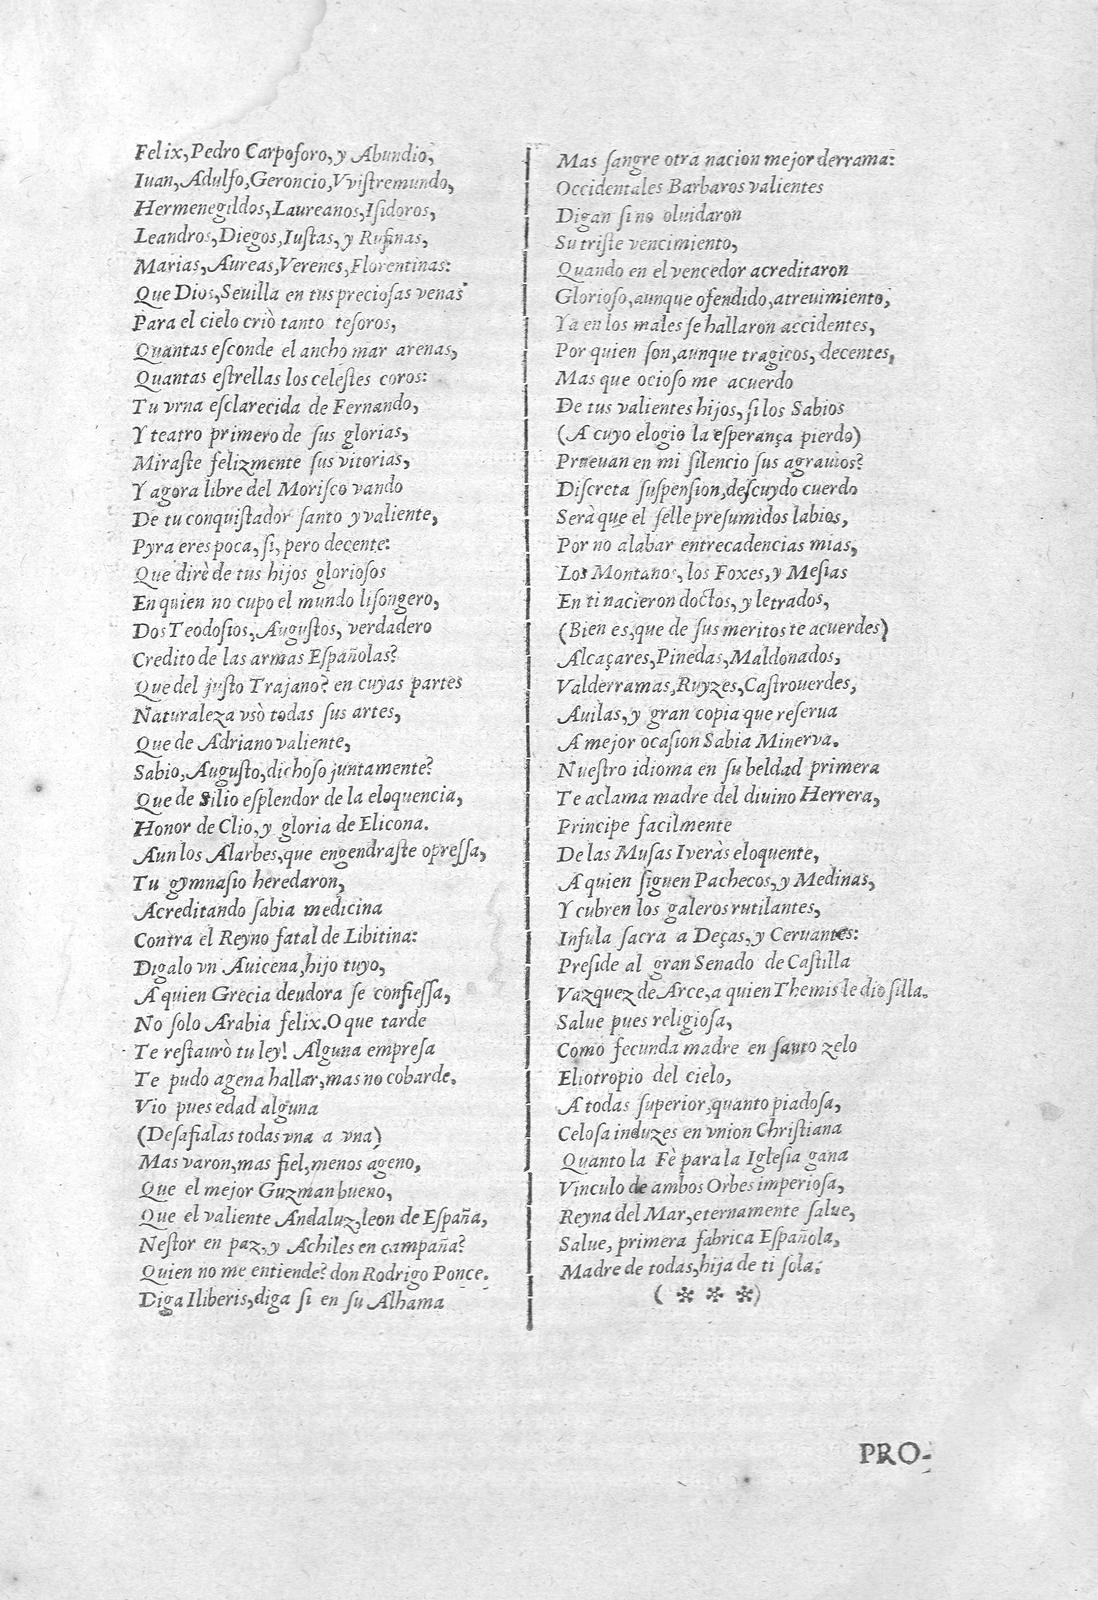 Felix, Pedro Carpoforo, y Abundio,
Iuan, Adulfo, Geroncio, Vvistremundo,
Hermenegildos, Laureanos, Isidoros,
Leandros, Diegos, Iustas, y Rufinas,
Marias, Aureas, Verenes, Florentinas:
Que Dios, Seuilla en tus preciosas venas
Para el cielo criò tanto tesoros,
Quantas esconde el ancho mar arenas,
Quantas estrellas los celestes coros:
Tu vrna esclarecida de Fernando,
Y teatro primero de sus glorias,
Miraste felizmente sus vitorias,
Y agora libre del Morisco vando
De tu conquistador santo y valiente,
Pyra eres poca, si, pero decente:
Que dirè de tus hijos gloriosos
En quien no cupo el mundo lisongero,
Dos Teodosios, Augustos, verdadero
Credito de las armas Españolas?
Que del justo Trajano? en cuyas partes
Naturaleza vsò todas sus artes,
Que de Adriano valiente,
Sabio, Augusto, dichoso juntamente?
Que de Silio esplendor de la eloquencia,
Honor de Clio, y gloria de Elicona.
Aun los Alarbes, que engendraste opressa,
Tu gymnasio heredaron,
Acreditando sabia medicina
Contra el Reyno fatal de Libitina:
Digalo vn Auicena, hijo tuyo,
A quien Grecia deudora se confiessa,
No solo Arabia felix. O que tarde
Te restaurò tu ley! Alguna empresa
Te pudo agena hallar, mas no cobarde.
Vio pues edad alguna
(Desafialas todas vna a vna)
Mas varon, mas fiel, menos ageno,
Que el mejor Guzman bueno,
Que el valiente Andaluz, leon de España,
Nestor en paz, y Achiles en campaña?
Quien no me entiende? don Rodrigo Ponce.
Diga Iliberis, diga si en su Alhama
Mas sangre otra nacion mejor derrama:
Occidentales Barbaros valientes
Digan si no oluidaron
Su triste vencimiento,
Quando en el vencedor acreditaron
Glorioso, aunque ofendido, atreuimiento,
Ya en los males se hallaron accidentes,
Por quien son, aunque tragicos, decentes,
Mas que ocioso me acuerdo
De tus valientes hijos, si los Sabios
(A cuyo elogio la esperança pierdo)
Prueuan en mi silencio sus agrauios?
Discreta suspension, descuydo cuerdo
Serà que el selle presumidos labios,
Por no alabar entre cadencias mias,
Los Montanos, los Foxes, y Mesias
En ti nacieron doctos, y letrados,
(Bien es, que de sus meritos te acuerdes)
Alcaçares, Pinedas, Maldonados,
Valderramas, Ruyzes, Castrouerdes,
Auilas, y gran copia que reserua
A mejor ocasion Sabia Minerva.
Nuestro idioma en su beldad primera
Te aclama madre del diuino Herrera,
Principe facilmente
De las Musas Iveràs eloquente,
A quien siguen Pachecos, y Medinas,
Y cubren los galeros rutilantes,
Infula sacra a Deças, y Ceruantes:
Preside al gran Senado de Castilla
Vazquez de Arce, a quien Themis le dio silla.
Salue pues religiosa,
Como fecunda madre en santo zelo
Eliotropio del cielo,
A todas superior, quanto piadosa,
Celosa induzes en vnion Christiana
Quanto la Fè para la Iglesia gana
Vinculo de ambos Orbes imperiosa,
Reyna del Mar, eternamente salue,
Salue, primera fabrica Española,
Madre de todas, hija de ti sola.
(***)
PRO-